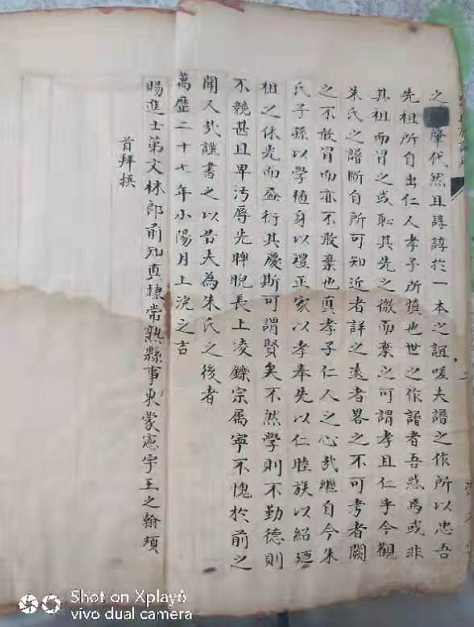 之肇代然且諄諄於一本之誼嗟夫譜之作所以忠吾
先祖所自出仁人孝子所慎也世之作譜者吾惑焉或非
其祖而冒之或恥其先之微而棄之可謂孝且仁乎今觀
朱氏之譜斷自所可知近者詳之遠者畧之不可考者闕
之不敢冒而亦不敢棄也真孝子仁人之心哉繼自今朱
氏子孫以學殖身以禮正家以孝奉先以仁睦族以紹廼
祖之休光而益衍其慶斯可謂賢矣不然學則不勤德則
不競甚且卑汚辱先睥睨長上凌鑠宗属寧不愧於前之
聞人哉謹書之以告夫為朱氏之後者
萬歷二十七年小陽月上浣之吉
賜進士第文林郎前知直隸常熟縣事東蒙憲宇王之翰頓
首拜撰
Shot on Xplay6
vivo dual camera